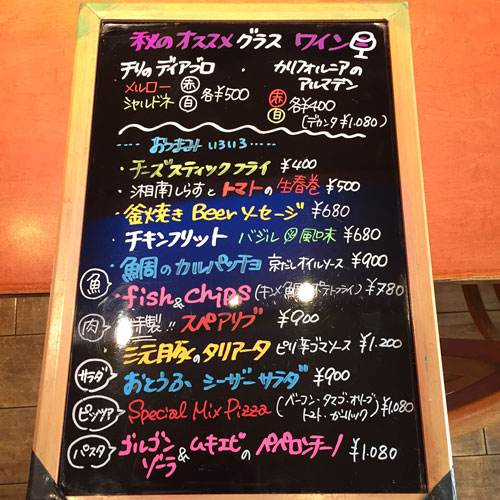 秋のオススメグラスワイン
チリのディアブロ ・ カリフォルニアの
アルマデン
メルロー 赤
シャルドネ 白 各¥500
赤 白 各¥400
(デカンタ¥1.080)
---- おつまみいろいろ‥‥----
・チーズスティックフライ ¥400
・湘南しらすとトマトの生春巻 ¥500
・釜焼きBeerソーセージ ¥680
・チキンフリット バジル 風味 ¥680
・鯛のカルパッチョ 京だしオイルソース ¥900
魚 ・fish&chips ¥780
肉 特製!! スペアリブ ¥900
三元豚のタリアータ ピリ辛ゴマソース ¥1.200
サラダ おとうふシーザーサラダ ¥900
ピッツァ Special Mix Pizza (ベーコン・タマゴ・オリーブ
トマト・ガーリック) ¥1.080
パスタ ゴルゴンゾーラ&ムキエビのペペロンチーノ ¥1.080